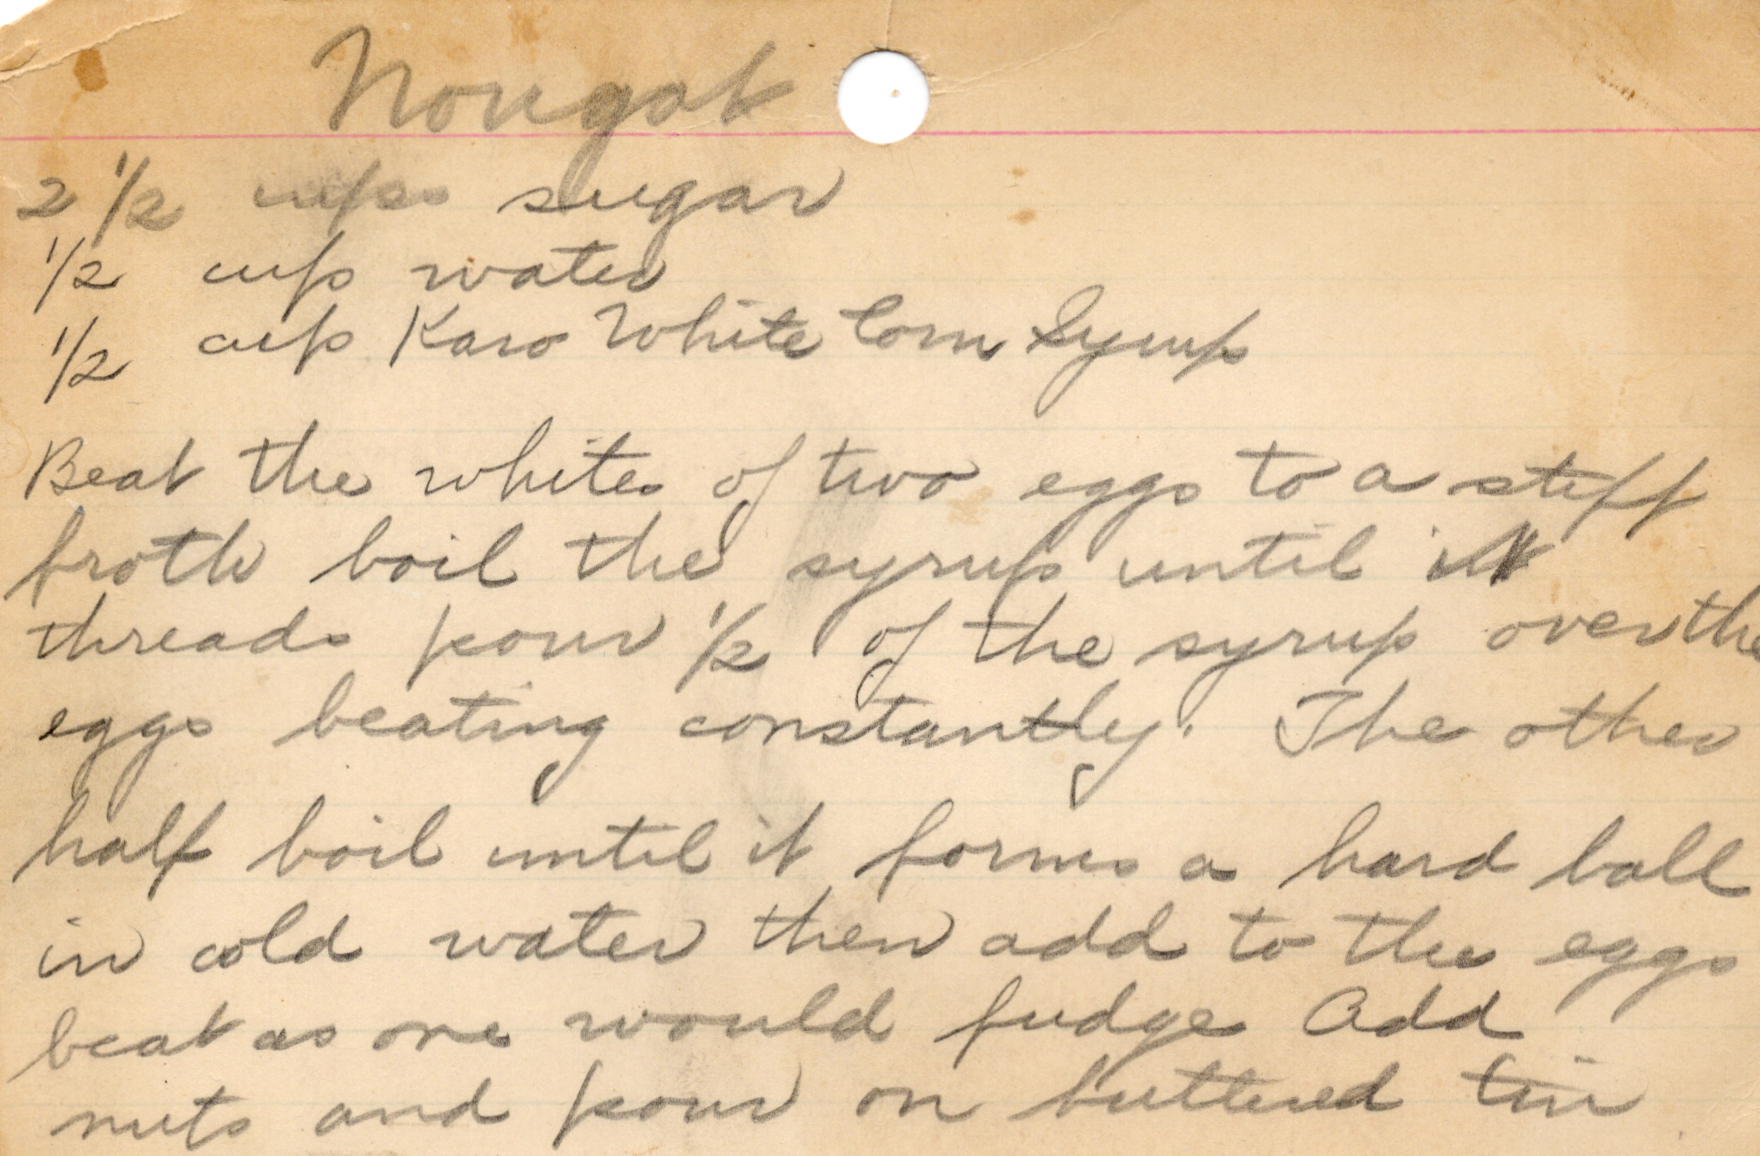 Nougat
2 1/2 cups sugar
1/2 cup water
1/2 cup Karo White Corn Syrup
Beat the whites of two eggs to a stiff
froth boil the syrup until it
threads pour 1/2 of the syrup over the
eggs beating constantly. The other
half boil until it forms a hard ball
in cold water then add to the eggs
beat as one would fudge Add
nuts and pour on buttered tin